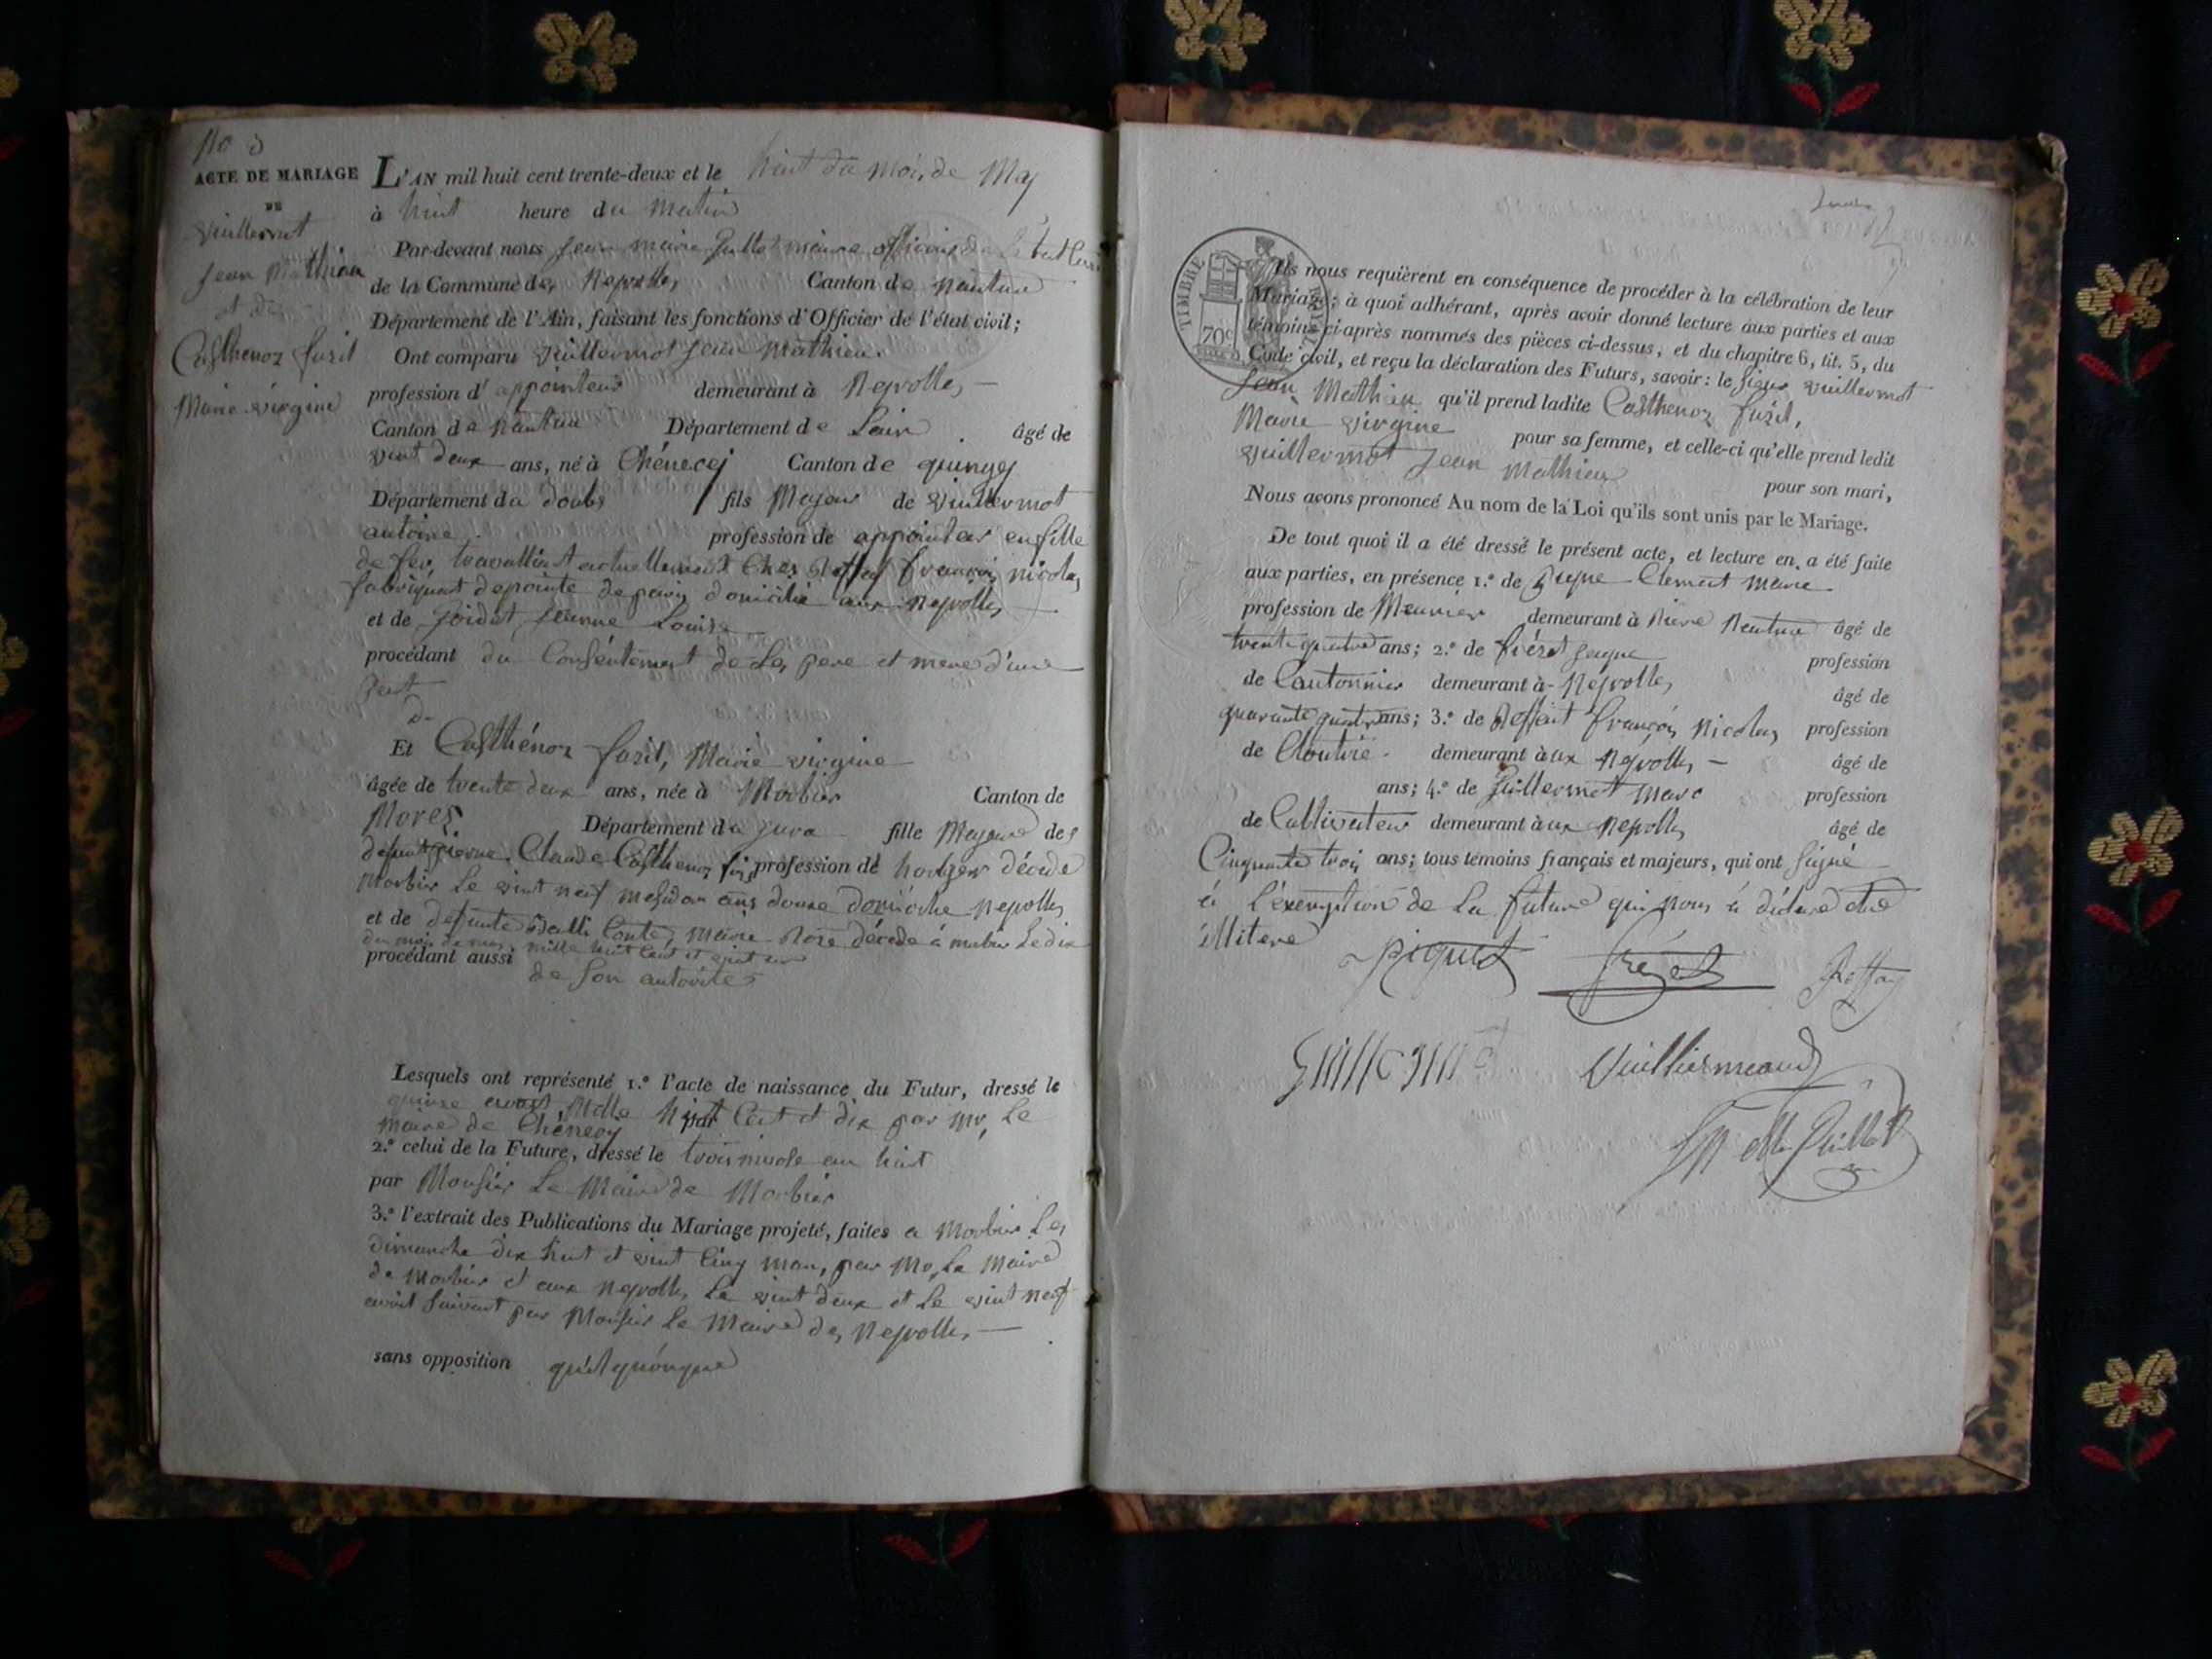 No 5
ACTE DE MARIAGE
DE
Vuillermot
Jean Mathieu
et de
Casthenoz fusil
Marie virginie
L'AN mil huit cent trente-deux et le huit du mois de May
à huit heure du matin
Par-devant nous Jean marie Guillot maire officier de
de la Commune des Neyrolles Canton de Nantua
Département de l'Ain, faisant les fonctions d'Officier de l'état civil;
Ont comparu Vuillermot Jean Mathieu.
profession d'appointeur demeurant à Neyrolles —
Canton de Nantua Département de Lain âgé de
vint deux ans, né à Chénecey Canton de quingey
Département du doubs fils Majeur de Vuillermot
antoine profession de appointeur en fille
de fer, travalliant actuellement Chez françois nicolas
fabriquant de pointe de paris domicilié aux Neyrolles
et de Jeanne Louise
procédant du Consentement de Ses pere et mere d'une
part
Et Casthénoz fusil, Marie virginie
âgée de trente deux ans, née à Morbier Canton de
Morez Département du Jura fille Majeure de
defunt pierre Claude Casthenoz profession de horloger décédé
Morbier Le vint neuf mesidor ans douze domicilié neyrolles
et de defunte Conte, marie Rose décédé à morbier Le dix
du mois de mille huit Cent et vint
procédant aussi
de Son autorité
Lesquels ont représenté 1.º l'acte de naissance du Futur, dressé le
quinze Mille huit Cent et dix par Mr, Le
maire de Chénecey
par
2.º celui de la Future, dressé le trois nivose an huit
par Monsieur Le Maire de Morbier
3.º l'extrait des Publications du Mariage projeté, faites a Morbier Les
dimanche dix huit et vint Cinq mars, par Mr, Le Maire
de Morbier et aux neyrolles Le vint deux et Le vint neuf
avril Suivant par Monsieur Le Maire des Neyrolles —
sans opposition quelquonque
TIMBRE ROYAL
70c
Ils nous requièrent en conséquence de procéder à la célébration de leur
Mariage; à quoi adhérant, après avoir donné lecture aux parties et aux
témoins ci-après nommés des pièces ci-dessus, et du chapitre 6, tit. 5, du
Code civil, et reçu la déclaration des Futurs, savoir: le Sieur Vuillermot
Jean Mathieu qu'il prend ladite Casthenoz fusil,
Marie virginie pour sa femme, et celle-ci qu'elle prend ledit
Vuillermot Jean Mathieu pour son mari,
Nous avons prononcé Au nom de la Loi qu'ils sont unis par le Mariage.
De tout quoi il a été dressé le présent acte, et lecture en a été faite
aux parties, en présence 1.º de Clement Marie
profession de Meunier demeurant à Nantua âgé de
trente quatre ans; 2.º de profession
de Cantonnier demeurant à Neyrolles âgé de
quarante quatre ans; 3.º de françois Nicolas profession
de Cloutié demeurant à ux Neyrolles — âgé de
ans; 4.º de Guillermet Marc profession
de Cultivateur demeurant à ux Neyrolles âgé de
Cinquante trois ans; tous témoins français et majeurs, qui ont Signé
à l'exemption de La future qui nous à déclaré etre
illitere
Piquet
Vuilliermeaud
Guillot